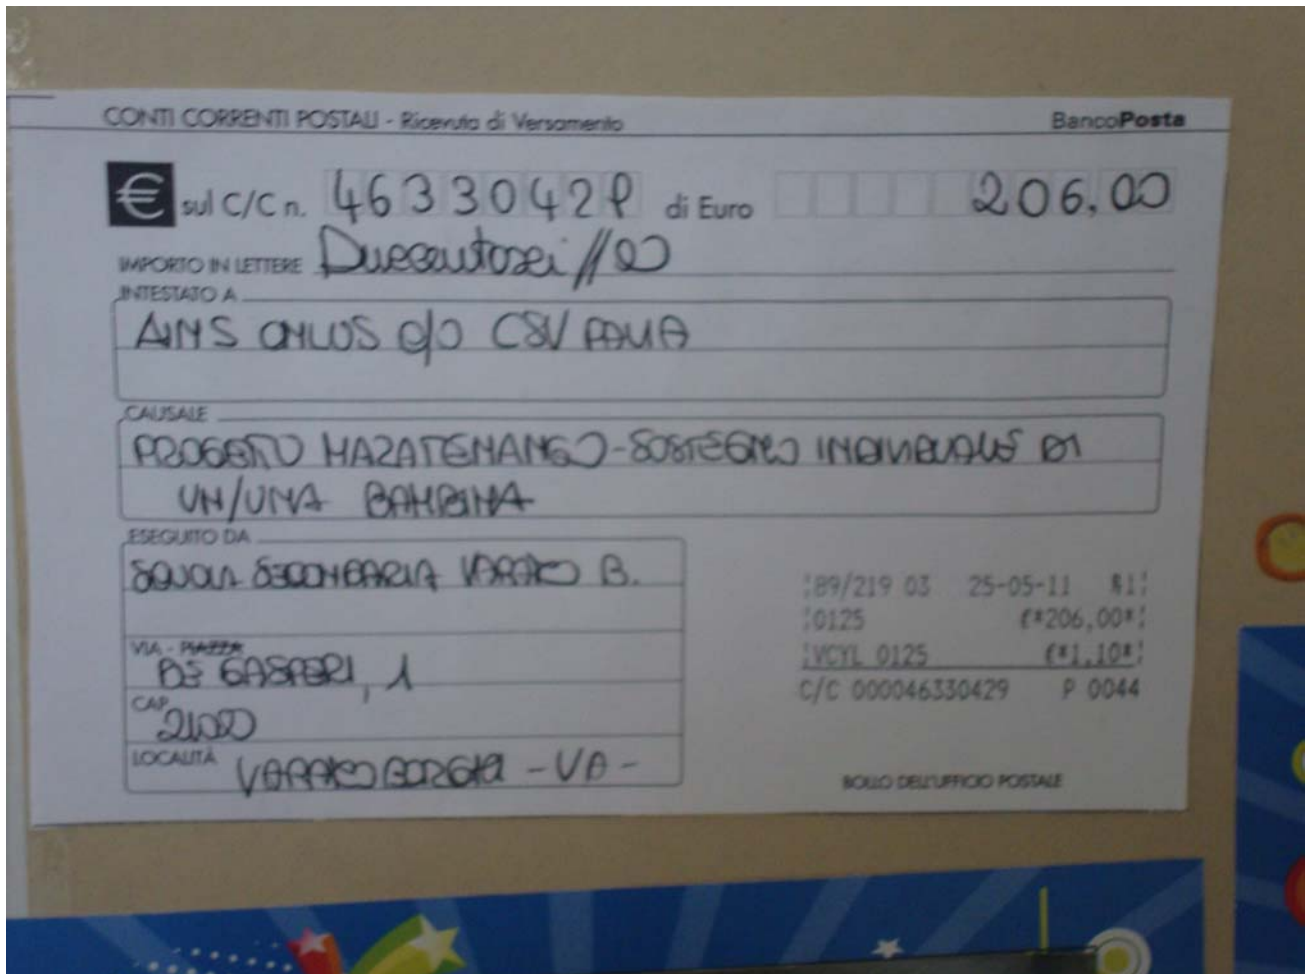 CONTI CORRENTI POSTALI - Ricevuta di Versamento BancoPosta
€ sul C/C n. 46330429 di Euro 206,00
IMPORTO IN LETTERE Duecentosei//00
INTESTATO A
AINS ONLUS c/o CSV PAVIA
CAUSALE
PROGETTO MAZATENANGO-SOSTEGNO INDIVIDUALE DI
UN/UNA BAMBINA
ESEGUITO DA
SCUOLA SECONDARIA VARANO B.
VIA - PIAZZA
DE GASPERI, 1
CAP
21020
LOCALITÀ VARANO BORGHI - VA -
89/219 03 25-05-11
0125 €*206,00*
VCYL 0125 €*1,10*
C/C 000046330429 P 0044
BOLLO DELL'UFFICIO POSTALE